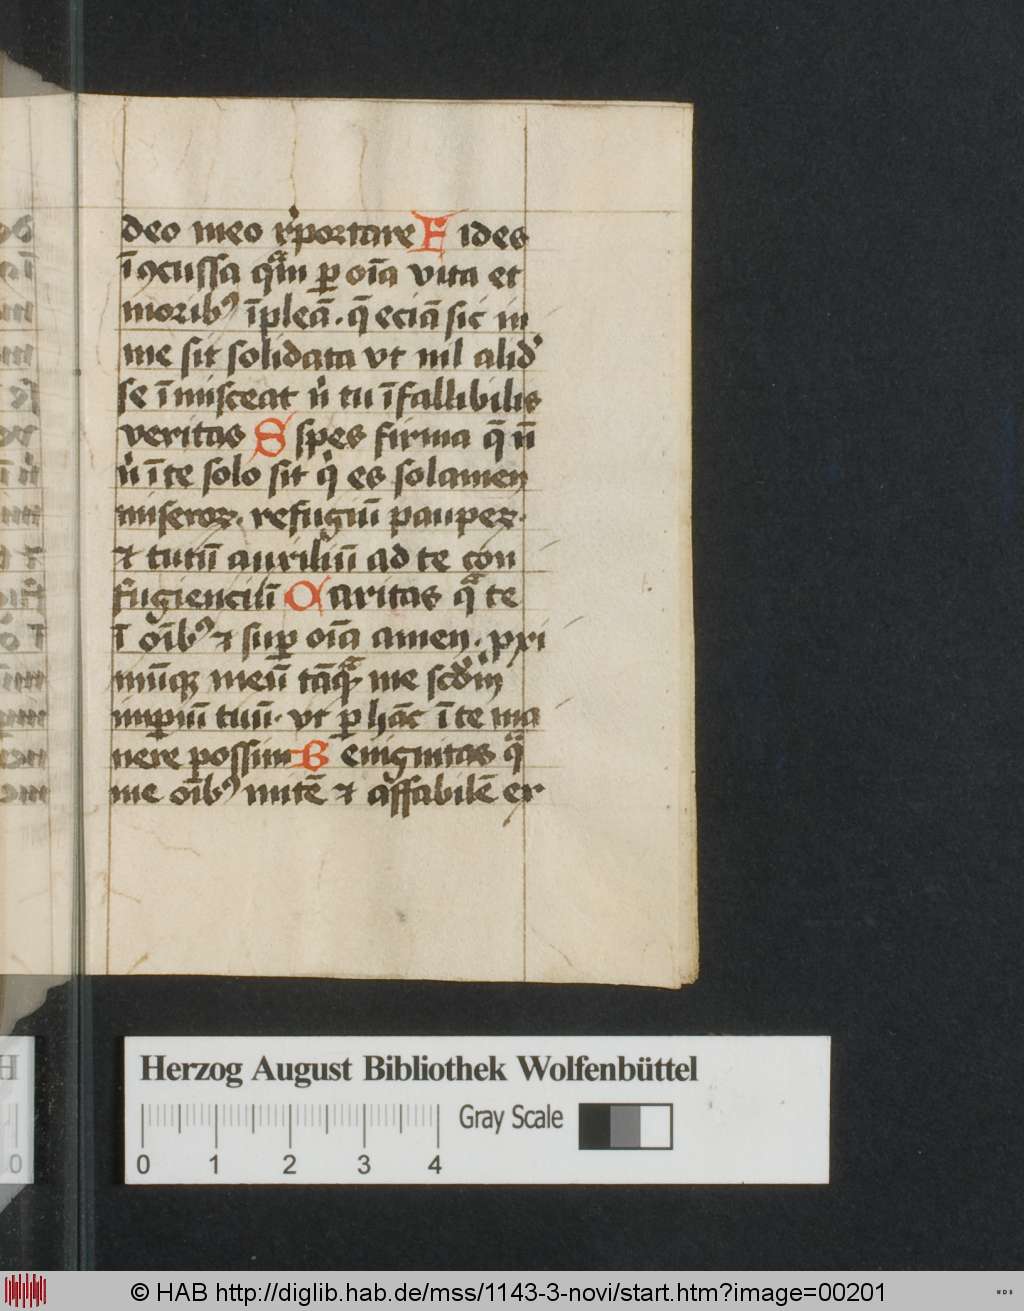 deo meo r̓portare Fides
ī ꝯcussa qᷓm ꝑ oīa vita et
moribꝰ īpleā · q̄ eciā sic in
me sit solidata vt nil alid̓
se īmisceat n̓ tu īfallibilis
veritas S spes firma q̄ n̄
n̓ ī te solo sit q̓ es solamen
miseroꝝ · refugiū paupeꝝ ·
⁊ tutū auxiliū ad te con
fugiencilī Caritas qᷓ te
ī oībꝰ ⁊ suꝑ oīa amen · pxi
mūqꝫ meū tāqᷓ me scd̓m
impiū tuū · vt ꝑ hāc ī te ma
nere possim Benignitas qᷓ
me oībꝰ mitē ⁊ affabilē ex
Herzog August Bibliothek Wolfenbüttel
Gray Scale
0 1 2 3 4
© HAB http://diglib.hab.de/mss/1143-3-novi/start.htm?image=00201